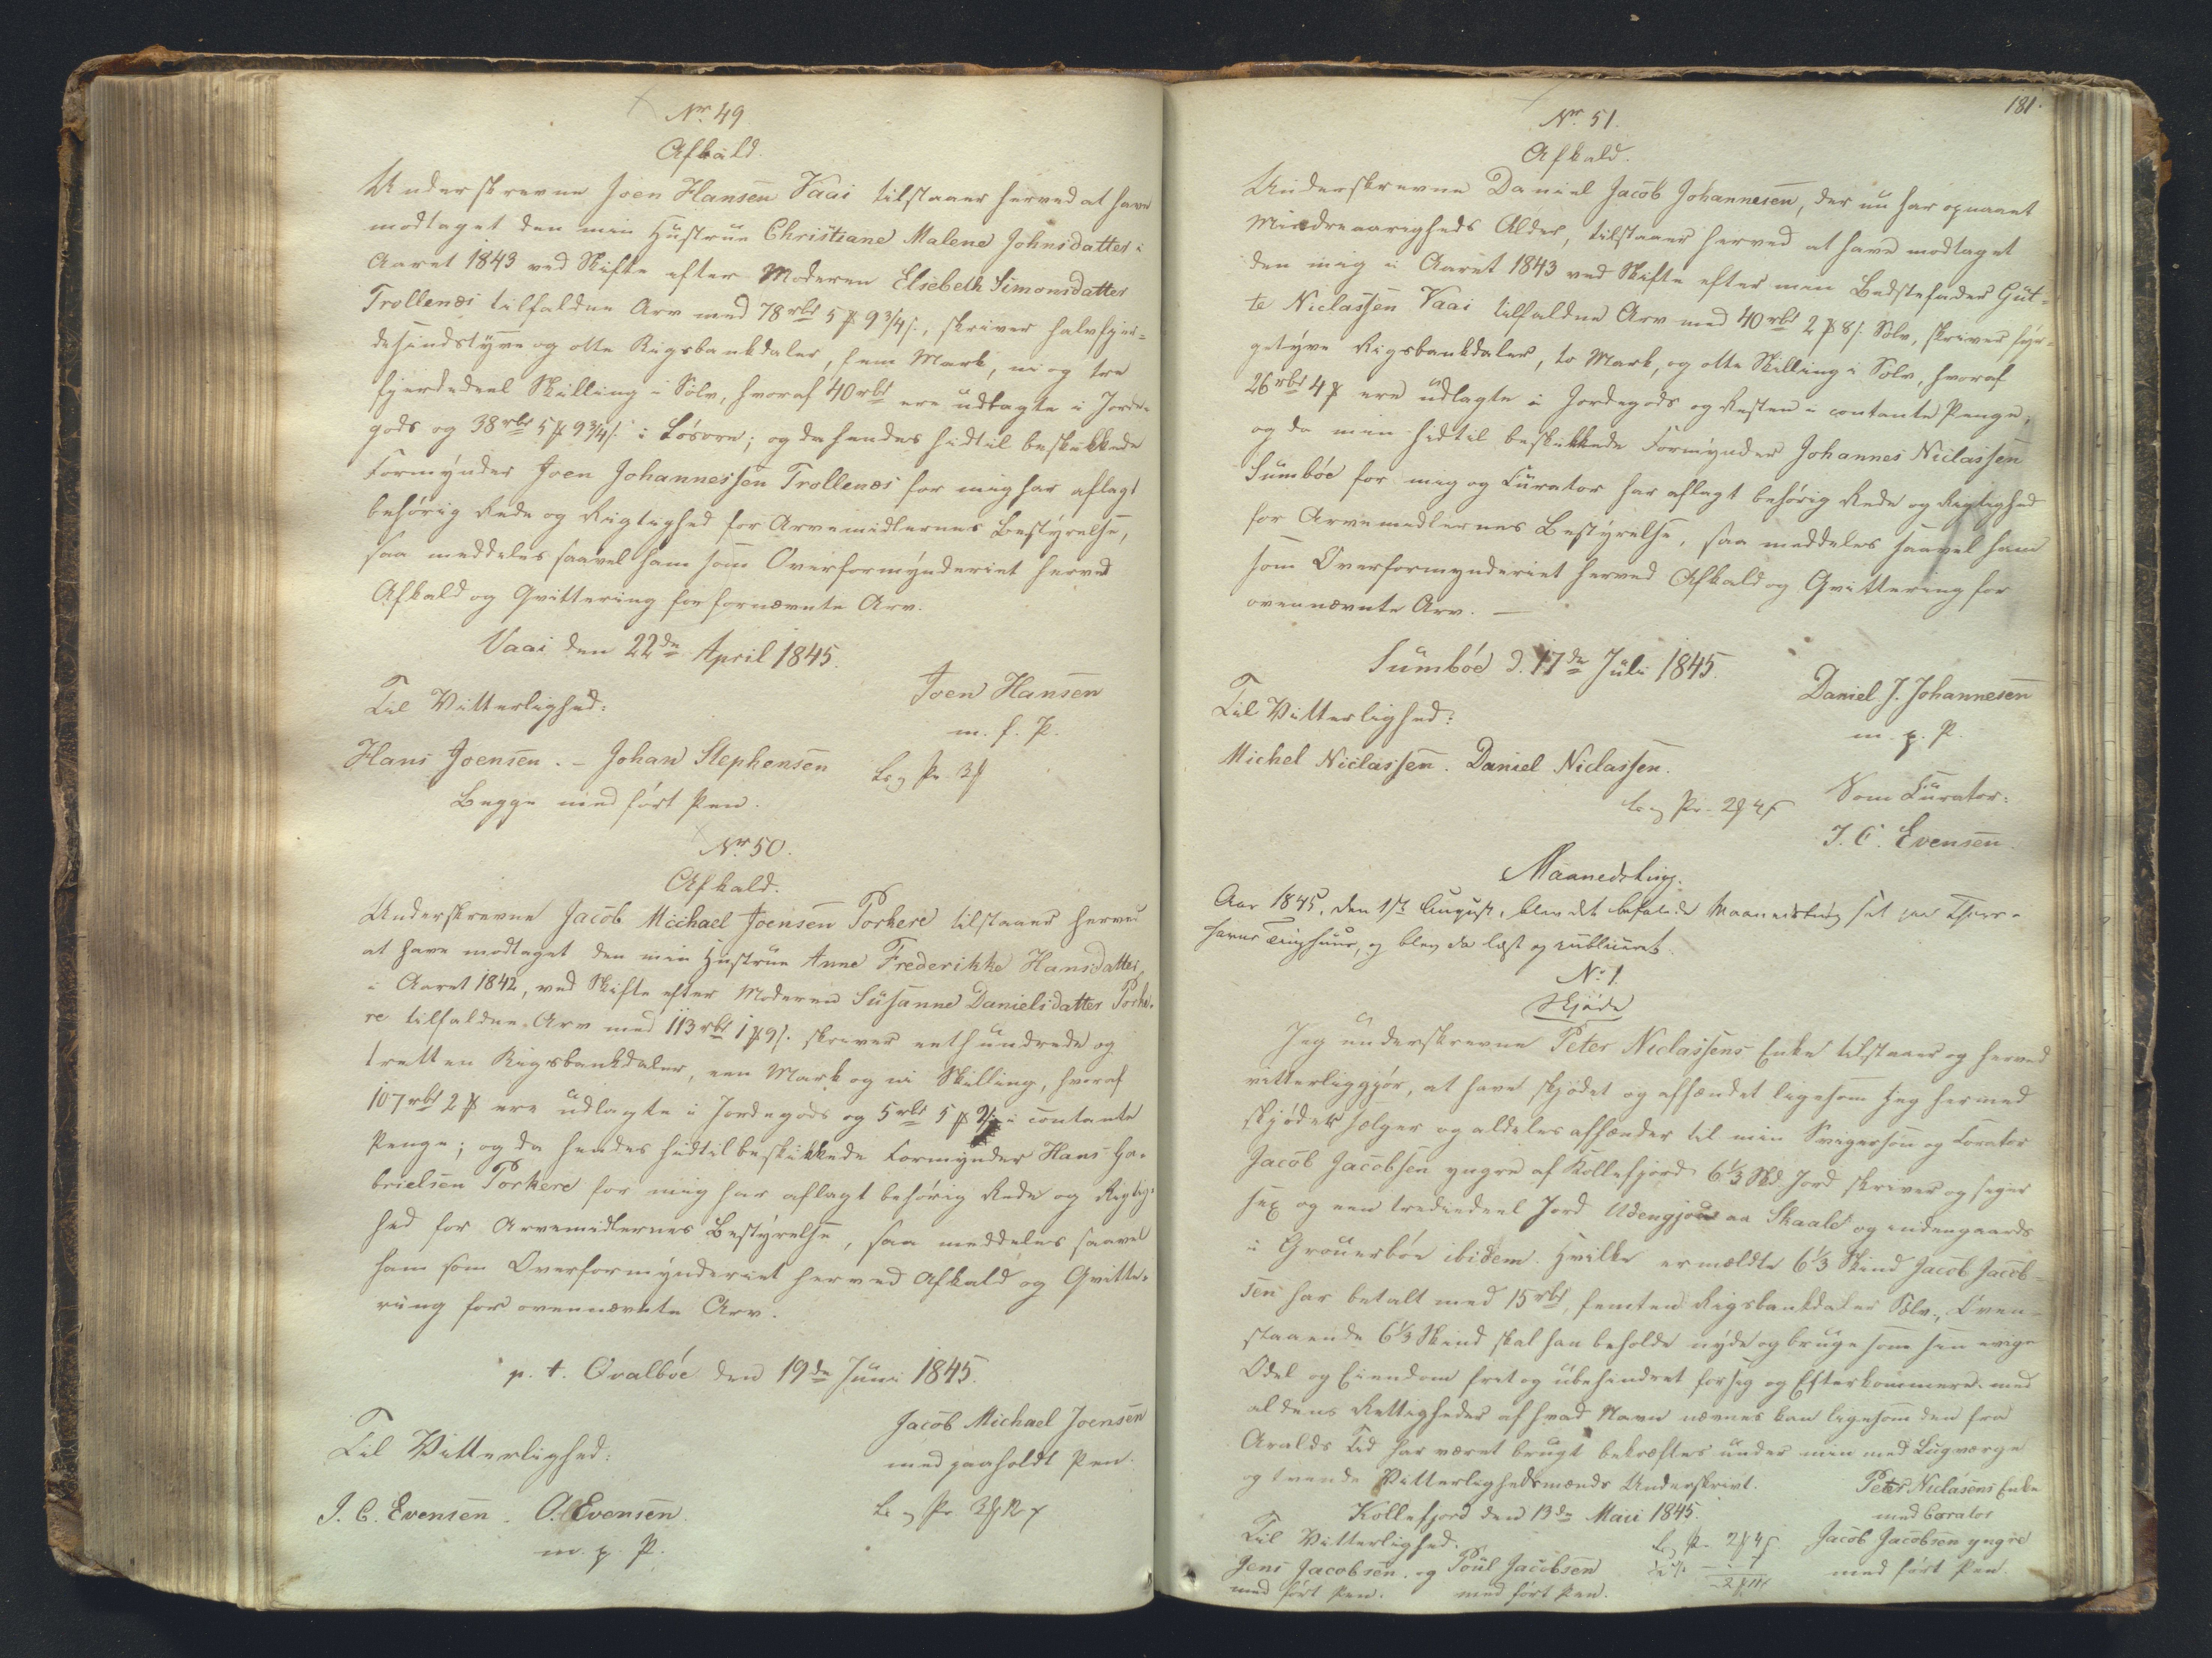 Nr. 49
Afkald.
Underskrevne Joen Hansen Vaai tilstaaer herved at have
modtaget den min Hustrue Christiane Malene Johnsdatter i
Aaret 1843 ved Skifte efter Moderen Elsebeth Simonsdatter
Trollenæs tilfaldne Arv med 78 rbd 5 ₻ 9 3/4 s., skriver halvfjer=
desindstyve og otte Rigsbankdaler, fem Mark, ni og tre
fjerdedeel Skilling i Sølv, hvoraf 40 rbd ere udlagte i Jorde=
gods og 38 rbd 5 ₻ 9 3/4 s. i Løsøre; og da hendes hidtil beskikkede
Formynder Joen Johannessen Trollenæs for mig har aflagt
behørig Rede og Rigtighed for Arvemidlernes Bestyrelse,
saa meddeles saavel ham som Overformynderiet herved
Afkald og Qvittering for fornævnte Arv.
Vaai den 22de April 1845.
Joen Hansen
m. f. P.
Til Vitterlighed:
Hans Joensen. – Johan Stephensen
Begge med ført Pen.
Nr. 50.
Afkald.
Underskrevne Jacob Michael Joensen Porkere tilstaaer herved
at have modtaget den min Hustrue Anne Frederikke Hansdatter,
i Aaret 1842, ved Skifte efter Moderen Susanne Danielsdatter Porke=
re tilfaldne Arv med 113 rbd 1 ₻ 9 s. skriver eethundrede og
tretten Rigsbankdaler, een Mark og ni Skilling, hvoraf
107 rbd 2 ₻ ere udlagte i Jordegods og 5 rbd 5 ₻ 9 s. i contante
Penge; og da hendes hidtil beskikkede Formynder Hans Ga=
brielsen Porkere for mig har aflagt behørig Rede og Rigtig=
hed for Arvemidlernes Bestyrelse, saa meddeles saavel
ham som Overformynderiet herved Afkald og Qvitte=
ring for ovennævnte Arv.
p. t. Qvalbøe den 19de Juni 1845.
Jacob Michael Joensen
med paaholdt Pen.
Til Vitterlighed:
J. C. Evensen. O. Evensen.
m. p. P.
181.
Nr. 51.
Afkald.
Underskrevne Daniel Jacob Johannesen, der nu har opnaaet
Mindreaarigheds Alder, tilstaaer herved at have modtaget
den mig i Aaret 1843 ved Skifte efter min Bedstefader Gut=
te Niclassen Vaai tilfaldne Arv med 40 rbd 2 ₻ 8 s. Sølv, skriver fyr=
getyve Rigsbankdaler, to Mark, og otte Skilling i Sølv, hvoraf
26 rbd 4 ₻ ere udlagte i Jordegods og Resten i contante Penge;
og da min hidtil beskikkede Formynder Johannes Niclassen
Sumbøe for mig og Curator har aflagt behørig Rede og Rigtighed
for Arvemidlernes Bestyrelse, saa meddeles saavel ham
som Overformynderiet herved Afkald og Qvittering for
ovennævnte Arv. —
Sumbøe d. 17de Juli 1845.
Daniel J. Johannesen
m. p. P.
Til Vitterlighed:
Michel Niclassen. Daniel Niclassen.
Som Curator:
J. C. Evensen.
Maanedsting.
Aar 1845, den 1ste August, blev det befalede Maanedsting sat paa Thors=
havns Tinghuus, og blev da læst og publiceret.
No. 1.
Skjøde
Jeg underskrevne Peter Niclassens Enke tilstaaer og herved
vitterliggjør, at have skjødet og afhændet ligesom jeg hermed
skjøder sælger og aldeles afhænder til min Svigersøn og Curator
Jacob Jacobsen yngre af Kollefjord 6 1/3 Skd. Jord skriver og siger
sex og een trediedeel Jord Udengjærds aa Skaale og indengaards
i Grouerbøe ibidem. Hvilke ermældte 6 1/3 Skind Jacob Jacob=
sen har betalt med 15 rbd, femten Rigsbankdaler Sølv., Oven=
staaende 6 1/3 Skind skal han beholde nyde og bruge som sin evige
Odel og Eiendom frit og ubehindret for sig og Efterkommere med
al dens Rettigheder af hvad Navn nævnes kan ligesom den fra
Aralds Tid har været brugt bekræftes under min med Laugværge
og tvende Vitterlighedsmænds Underskrivt.
Kollefjord den 13de Mai 1845.
Peter Niclasens Enke
med Curator
Jacob Jacobsen yngre
med ført Pen.
Til Vitterlighed.
Jens Jacobsen. og Poul Jacobsen
med ført Pen. med ført Pen.